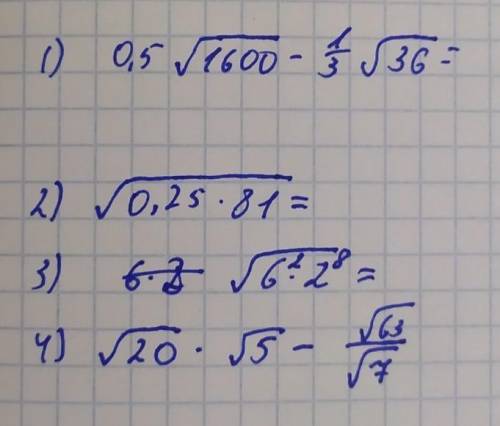 1) 0,5 √1600 - 1/3 √36 =
2) √0,25 · 81 =
3) √6² · 2⁸ =
4) √20 · √5 - √63/√7